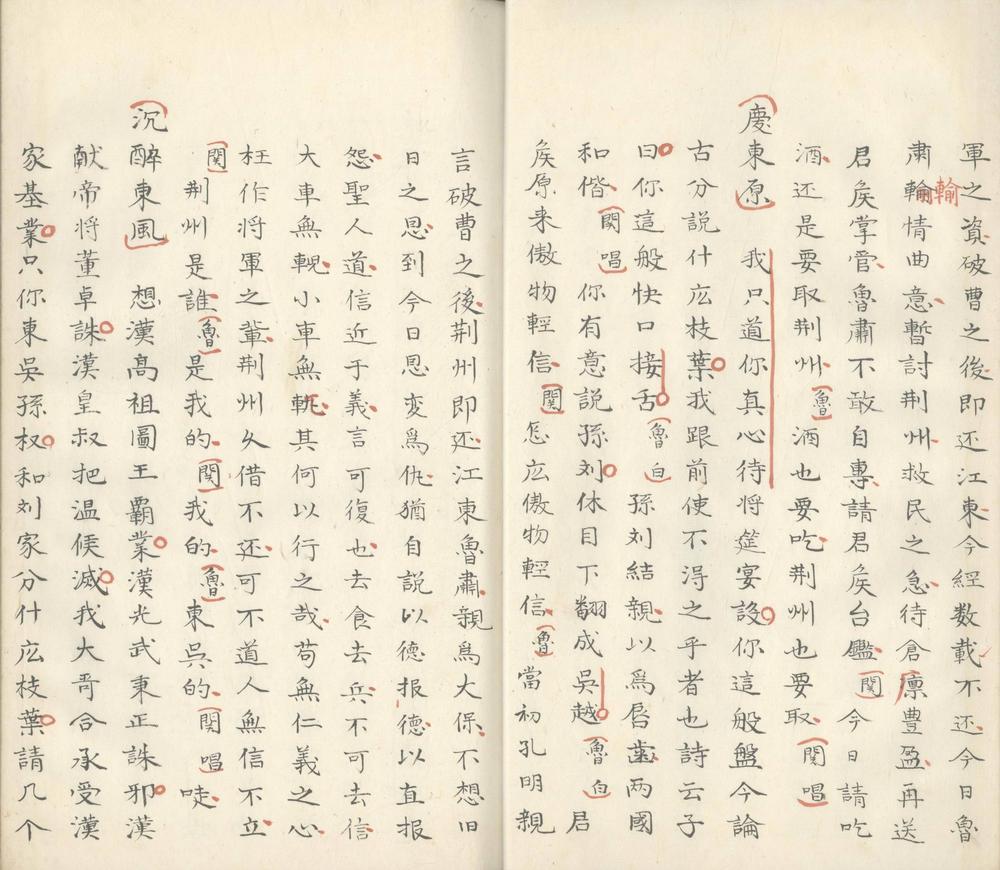 軍之資破曹之後即还江東今経数載不还今日魯
肅輸情曲意暫討荆州救民之急待倉廪豊盈再送
君矦掌管魯肅不敢自專請君矦台鑑関今日請吃
酒还是要取荆州魯酒也要吃荆州也要取関唱
慶東原 我只道你真心待将筵宴設你這般盤今論
古分説什広枝葉我跟前使不淂之乎者也詩云子
曰你這般快口接舌魯白孫刘結親以為唇歯両國
和偕関唱你有意說孫刘休目下翻成吳越魯白君
矦原来傲物輕信関怎広傲物輕信魯當初孔明親
言破曹之後荆州即还江東魯肅親為大保不想旧
日之恩到今日恩変為仇猶自説以德报德以直报
怨聖人道信近于義言可復也去食去兵不可去信
大車無輗小車無軏其何以行之哉苟無仁義之心
枉作将軍之輩荆州久借不还可不道人無信不立
関荆州是誰魯是我的関我的魯東吳的関唱唗
沉醉東風 想漢高祖圖王覇業漢光武東正誅邪漢
献帝将董卓誅漢皇叔把温候滅我大哥合承受漢
家基業只你東吳孫权和刘家分什広枝葉請几个